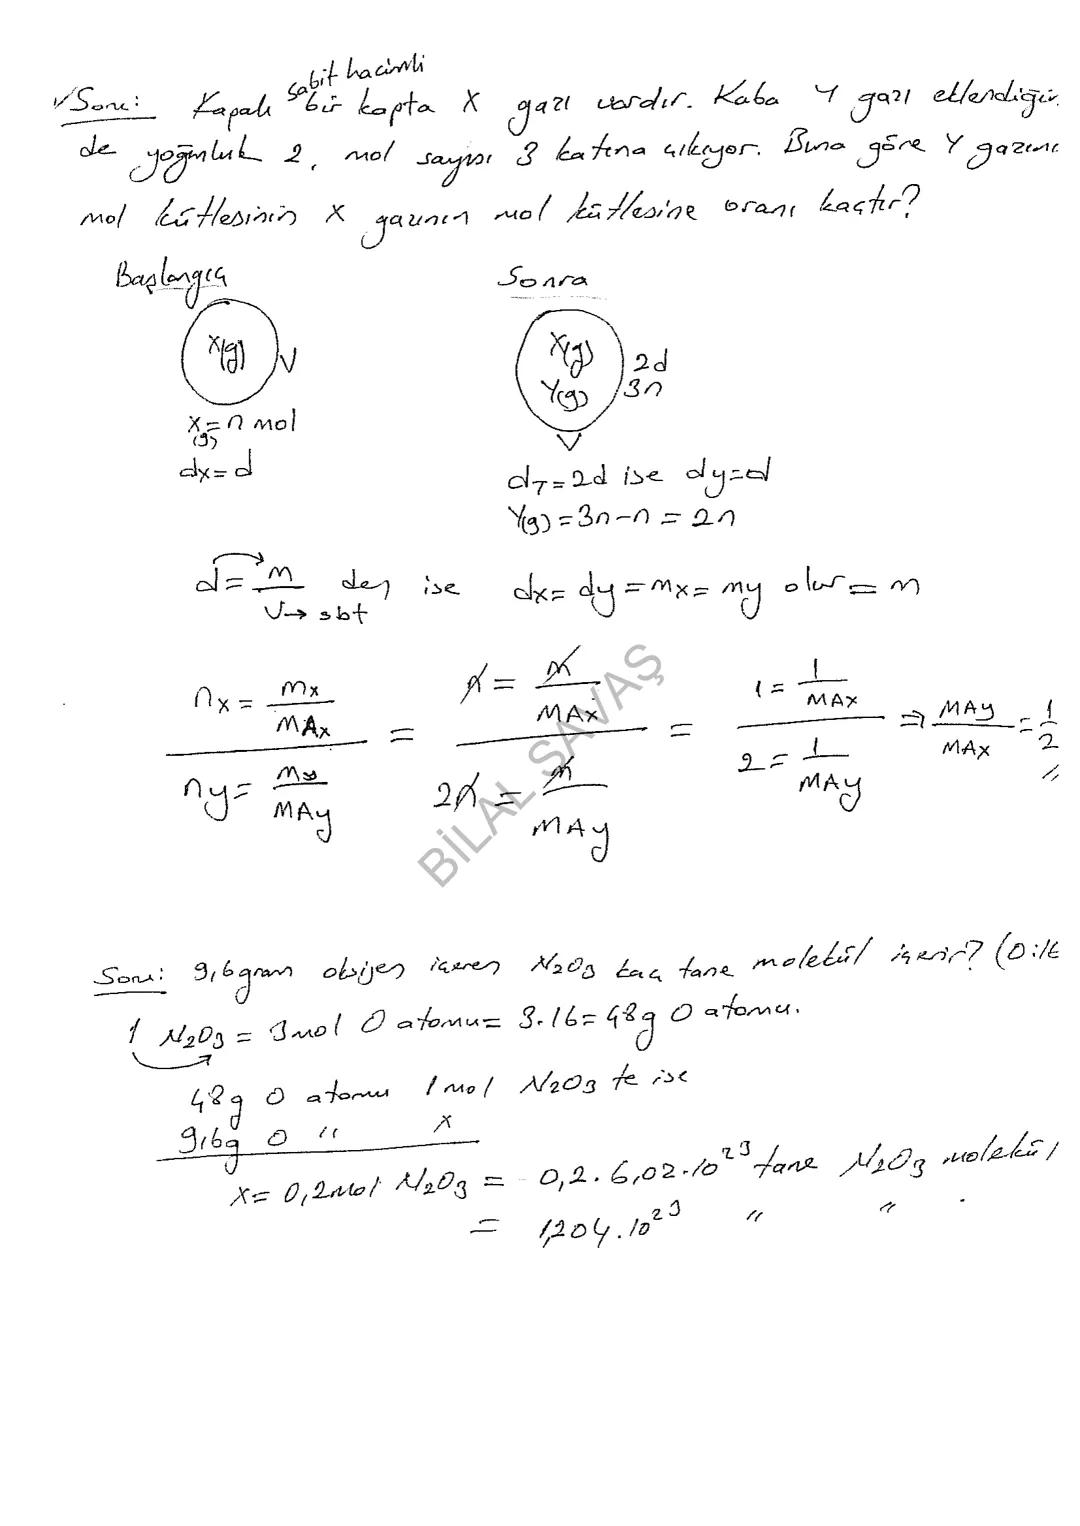 sabit hacimli
√ Soru: Kapalı bir kapta X gazı vardır. Kaba Y gazı eklendiğin
de yoğunluk 2, mol sayısı 3 katına çıkıyor. Buna göre Y gazını
mol kütlesinin X gazının mol kütlesine oranı kaçtır?
Başlangıç Sonra
X(g) V
X(g) 2d
Y(g) 3n
V
X(g) = n mol
dx = d
dT = 2d ise dy = d
Y(g) = 3n - n = 2n
d = m / V → sbt den ise dx = dy = mx = my olur = m
nx = mx / MAx = n = m / MAx = 1 = 1 / MAx ⇒ MAy / MAx = 1/2 //
ny = my / MAy 2n = m / MAy 2 = 1 / MAy
BİLAL SAVAŞ
Soru: 9,6 gram oksijen içeren N2O3 kaç tane molekül içerir? (O:16
1 N2O3 = 3 mol O atomu = 3.16 = 48g O atomu.
48g O atomu 1 mol N2O3 te ise
9,6g O " x
x = 0,2 mol N2O3 = 0,2 . 6,02 . 10²³ tane N2O3 molekül
= 1,204 . 10²³ " " .